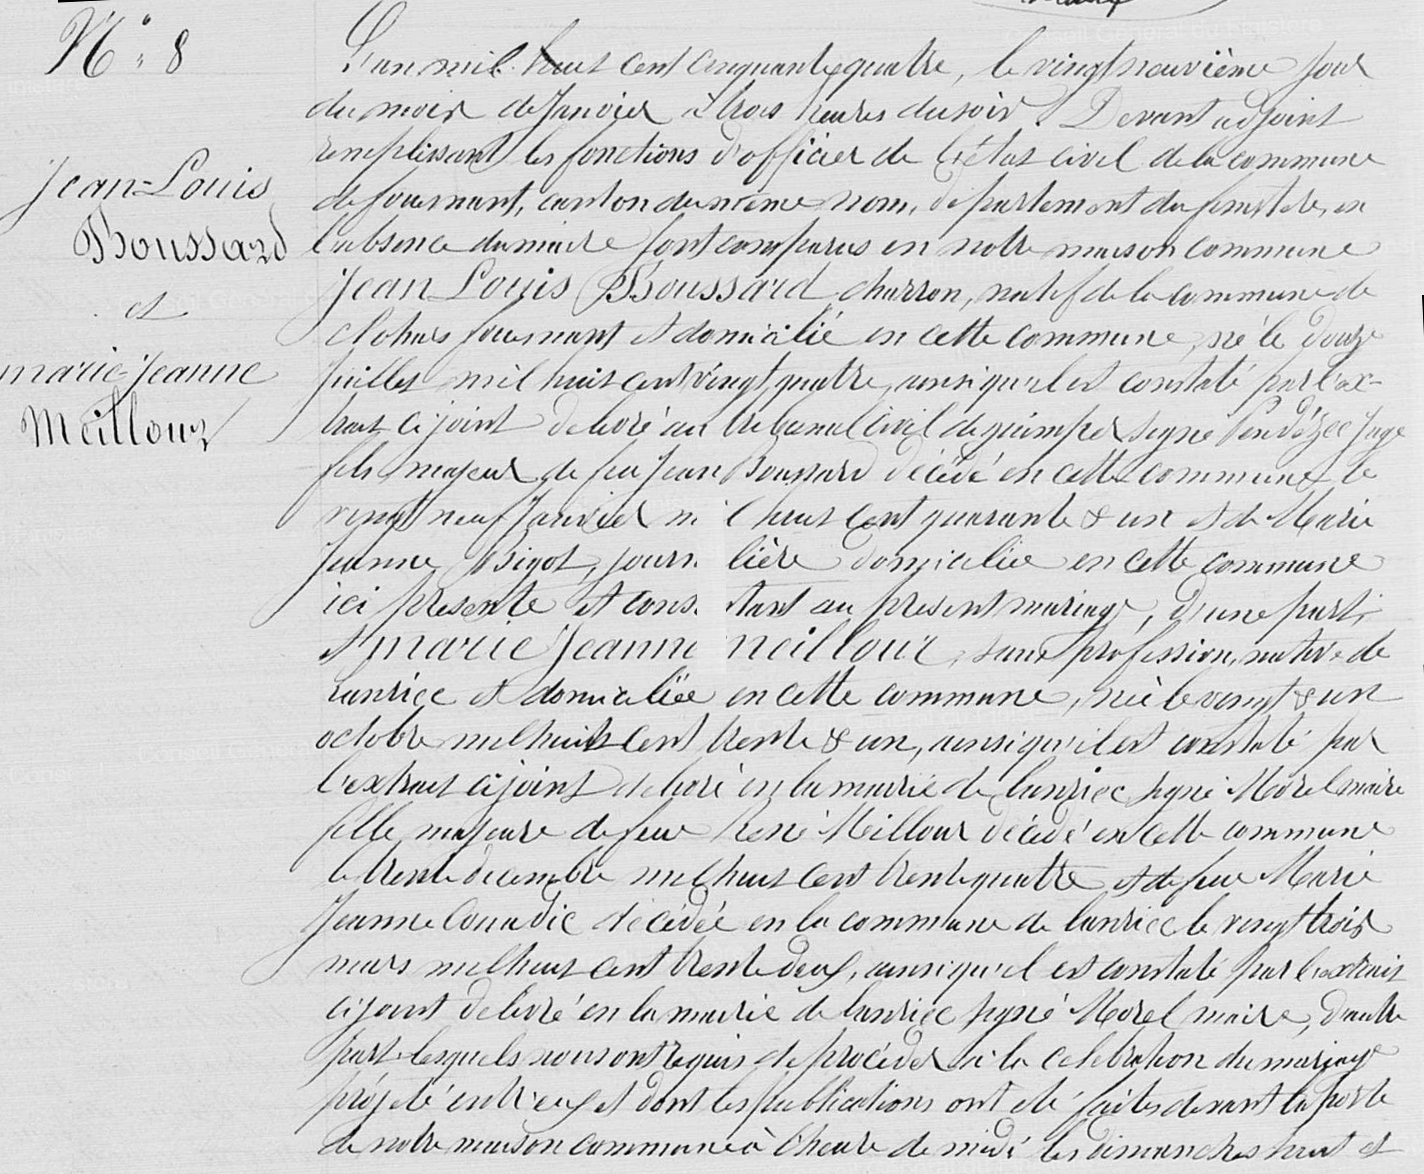 N° 8
Jean-Louis
Boussard
et
marie jeanne
Meillour
L'an mil huit cent cinquante quatre, le vingt neuvième jour
du mois de Janvier à trois heures du soir. Devant adjoint
remplissant les fonctions d'officier de l'état civil de la commune
de fouesnant, canton du même nom, département du finistère, en
l'absence du maire sont comparus en notre maison commune
Jean Louis Boussard charron, natif de la commune de
clohars fouesnant et domicilié en cette commune, né le douze
juillet mil huit cent vingt quatre, ainsi qu'il est constaté par l'ex-
trait ci joint délivré au tribunal civil de quimper signé juge
fils majeur de feu Jean Boussard décédé en cette commune le
vingt neuf Janvier mil huit cent quarante & un et de Marie
Jeanne Bigot, journalière domiciliée en cette commune
ici présente et consentant au présent mariage, d'une part,
et marie Jeanne meillour, sans profession, native de
lanriec et domiciliée en cette commune, née le vingt & un
octobre mil huit cent trente & un, ainsi qu'il est constaté par
l'extrait ci joint délivré en la mairie de lanriec, signé Morel maire
fille majeure de feu René Meillour décédé en cette commune
le trente décembre mil huit cent trente quatre et de feue Marie
Jeanne Conadic décédée en la commune de lanriec le vingt trois
mars mil huit cent trente deux, ainsi qu'il est constaté par l'extrait
ci joint délivré en la mairie de lanriec signé Morel maire, d'autre
part. lesquels nous ont requis de procéder à la célébration du mariage
projeté entr'eux et dont les publications ont été faites devant la porte
de notre maison commune à l'heure de midi les dimanches huit et